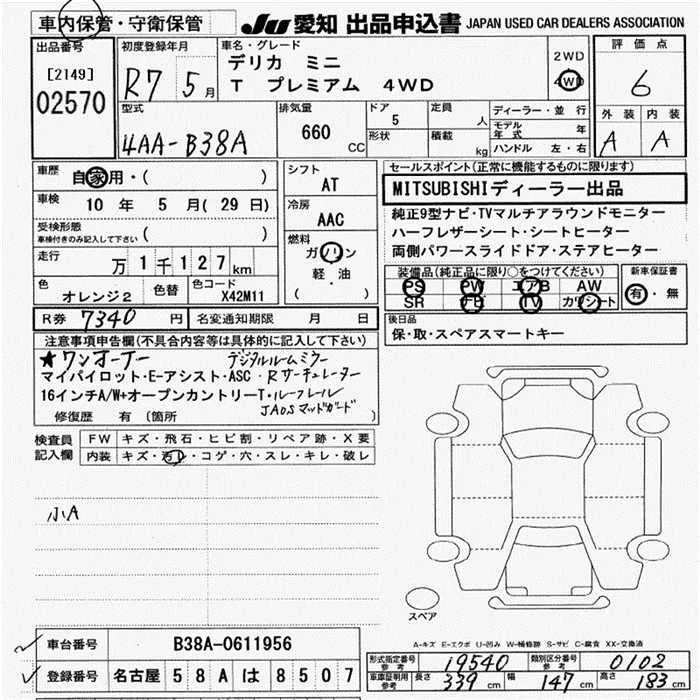 車内保管・守衛保管
JU 愛知 出品申込書 JAPAN USED CAR DEALERS ASSOCIATION
出品番号
[2149]
02570
初度登録年月
R7 5月
車名・グレード
デリカ ミニ
T プレミアム 4WD
2WD
4WD
評価点
6
外装 内装
A A
型式
4AA-B38A
排気量
660
CC
ドア
5
形状
定員
人
積載
kg
ディーラー・並行
モデル年式 年
ハンドル 左・右
車歴
自家用・( )
車検
10年 5月(29日)
受検形態
車検付きのみ記入して下さい ( )
走行
万1千127km
色
オレンジ2
色替
色コード
X42M11
シフト
AT
冷房
AAC
燃料
ガソリン
軽・油
( )
セールスポイント(正常に機能するものに限ります)
MITSUBISHIディーラー出品
純正9型ナビ・TVマルチアラウンドモニター
ハーフレザーシート・シートヒーター
両側パワースライドドア・ステアヒーター
装備品(純正品に限り○をつけてください)
PS PW エアB AW
SR ナビ TV カワシート
新車保証書
有・無
R券 7340円
名変通知期限 月 日
後日品
保・取・スペアスマートキー
注意事項申告欄(不具合内容等は具体的に記入して下さい)
★ワンオーナー デジタルルームミラー
マイパイロット・E-アシスト・ASC・Rサーキュレーター
16インチA/W+オープンカントリーT・ルーフレール
JAOSマッドガード
修復歴 有(箇所 )
検査員記入欄
FW キズ・飛石・ヒビ割・リペア跡・X要
内装 キズ・汚レ・コゲ・穴・スレ・キレ・破レ
小A
スペア
A-キズ E-エクボ U-凹み W-補修跡 S-サビ C-腐食 XX-交換済
車台番号 B38A-0611956
登録番号 名古屋 58Aは8507
型式指定番号 参考 19540
類別区分番号 参考 0102
車庫証明用 参考 長さ 339cm 幅 147cm 高さ 183cm